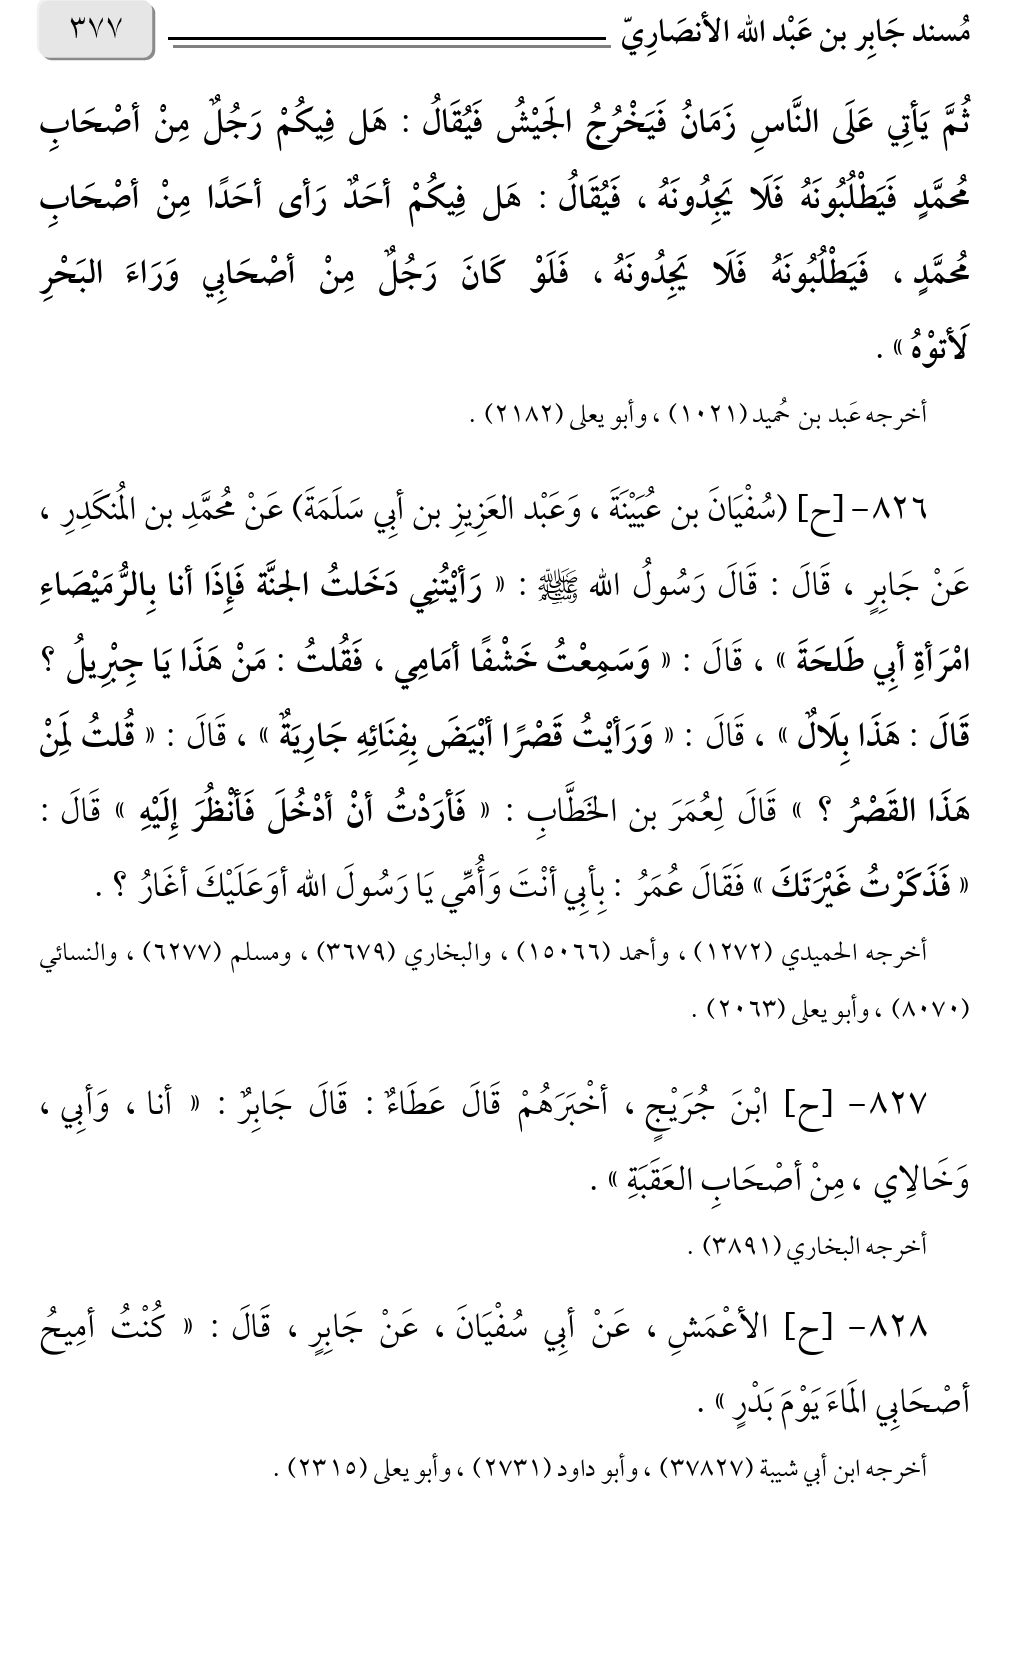 مُسند جَابِر بن عَبْد الله الأنصَارِيّ ٣٧٧
ثُمَّ يَأتِي عَلَى النَّاسِ زَمَانُ فَيَخْرُجُ الجَيْشُ فَيُقَالُ : هَل فِيكُمْ رَجُلٌ مِنْ أصْحَابِ
مُحمَّدٍ فَيَطْلُبُونَهُ فَلَا يَجِدُونَهُ ، فَيُقَالُ : هَل فِيكُمْ أحَدٌ رَأى أحَدًا مِنْ أصْحَابِ
مُحمَّدٍ ، فَيَطْلُبُونَهُ فَلَا يَجِدُونَهُ ، فَلَوْ كَانَ رَجُلٌ مِنْ أصْحَابِي وَرَاءَ البَحْرِ
لَأتوْهُ » .
أخرجه عَبد بن حُميد (١٠٢١) ، وأبو يعلى (٢١٨٢) .
٨٢٦- [ح] (سُفْيَانَ بن عُيَيْنَةَ ، وَعَبْد العَزِيزِ بن أبِي سَلَمَةَ) عَنْ مُحمَّدِ بن المُنكَدِرِ ،
عَنْ جَابِرٍ ، قَالَ : قَالَ رَسُولُ الله ﷺ : « رَأيْتُنِي دَخَلتُ الجنَّة فَإِذَا أنا بِالرُّمَيْصَاءِ
امْرَأةِ أبِي طَلحَةَ » ، قَالَ : « وَسَمِعْتُ خَشْفًا أمَامِي ، فَقُلتُ : مَنْ هَذَا يَا جِبْرِيلُ ؟
قَالَ : هَذَا بِلَالٌ » ، قَالَ : « وَرَأيْتُ قَصْرًا أبْيَضَ بِفِنَائِهِ جَارِيَةٌ » ، قَالَ : « قُلتُ لِمَنْ
هَذَا القَصْرُ ؟ » قَالَ لِعُمَرَ بن الخَطَّابِ : « فَأرَدْتُ أنْ أدْخُلَ فَأنْظُرَ إِلَيْهِ » قَالَ :
« فَذَكَرْتُ غَيْرَتَكَ » فَقَالَ عُمَرُ : بِأبِي أنْتَ وَأُمِّي يَا رَسُولَ الله أوَعَلَيْكَ أغَارُ ؟ .
أخرجه الحميدي (١٢٧٢) ، وأحمد (١٥٠٦٦) ، والبخاري (٣٦٧٩) ، ومسلم (٦٢٧٧) ، والنسائي
(٨٠٧٠) ، وأبو يعلى (٢٠٦٣) .
٨٢٧- [ح] ابْنَ جُرَيْجٍ ، أخْبَرَهُمْ قَالَ عَطَاءٌ : قَالَ جَابِرٌ : « أنا ، وَأبِي ،
وَخَالِاي ، مِنْ أصْحَابِ العَقَبَةِ » .
أخرجه البخاري (٣٨٩١) .
٨٢٨- [ح] الأعْمَشِ ، عَنْ أبِي سُفْيَانَ ، عَنْ جَابِرٍ ، قَالَ : « كُنْتُ أمِيحُ
أصْحَابِي المَاءَ يَوْمَ بَدْرٍ » .
أخرجه ابن أبي شيبة (٣٧٨٢٧) ، وأبو داود (٢٧٣١) ، وأبو يعلى (٢٣١٥) .